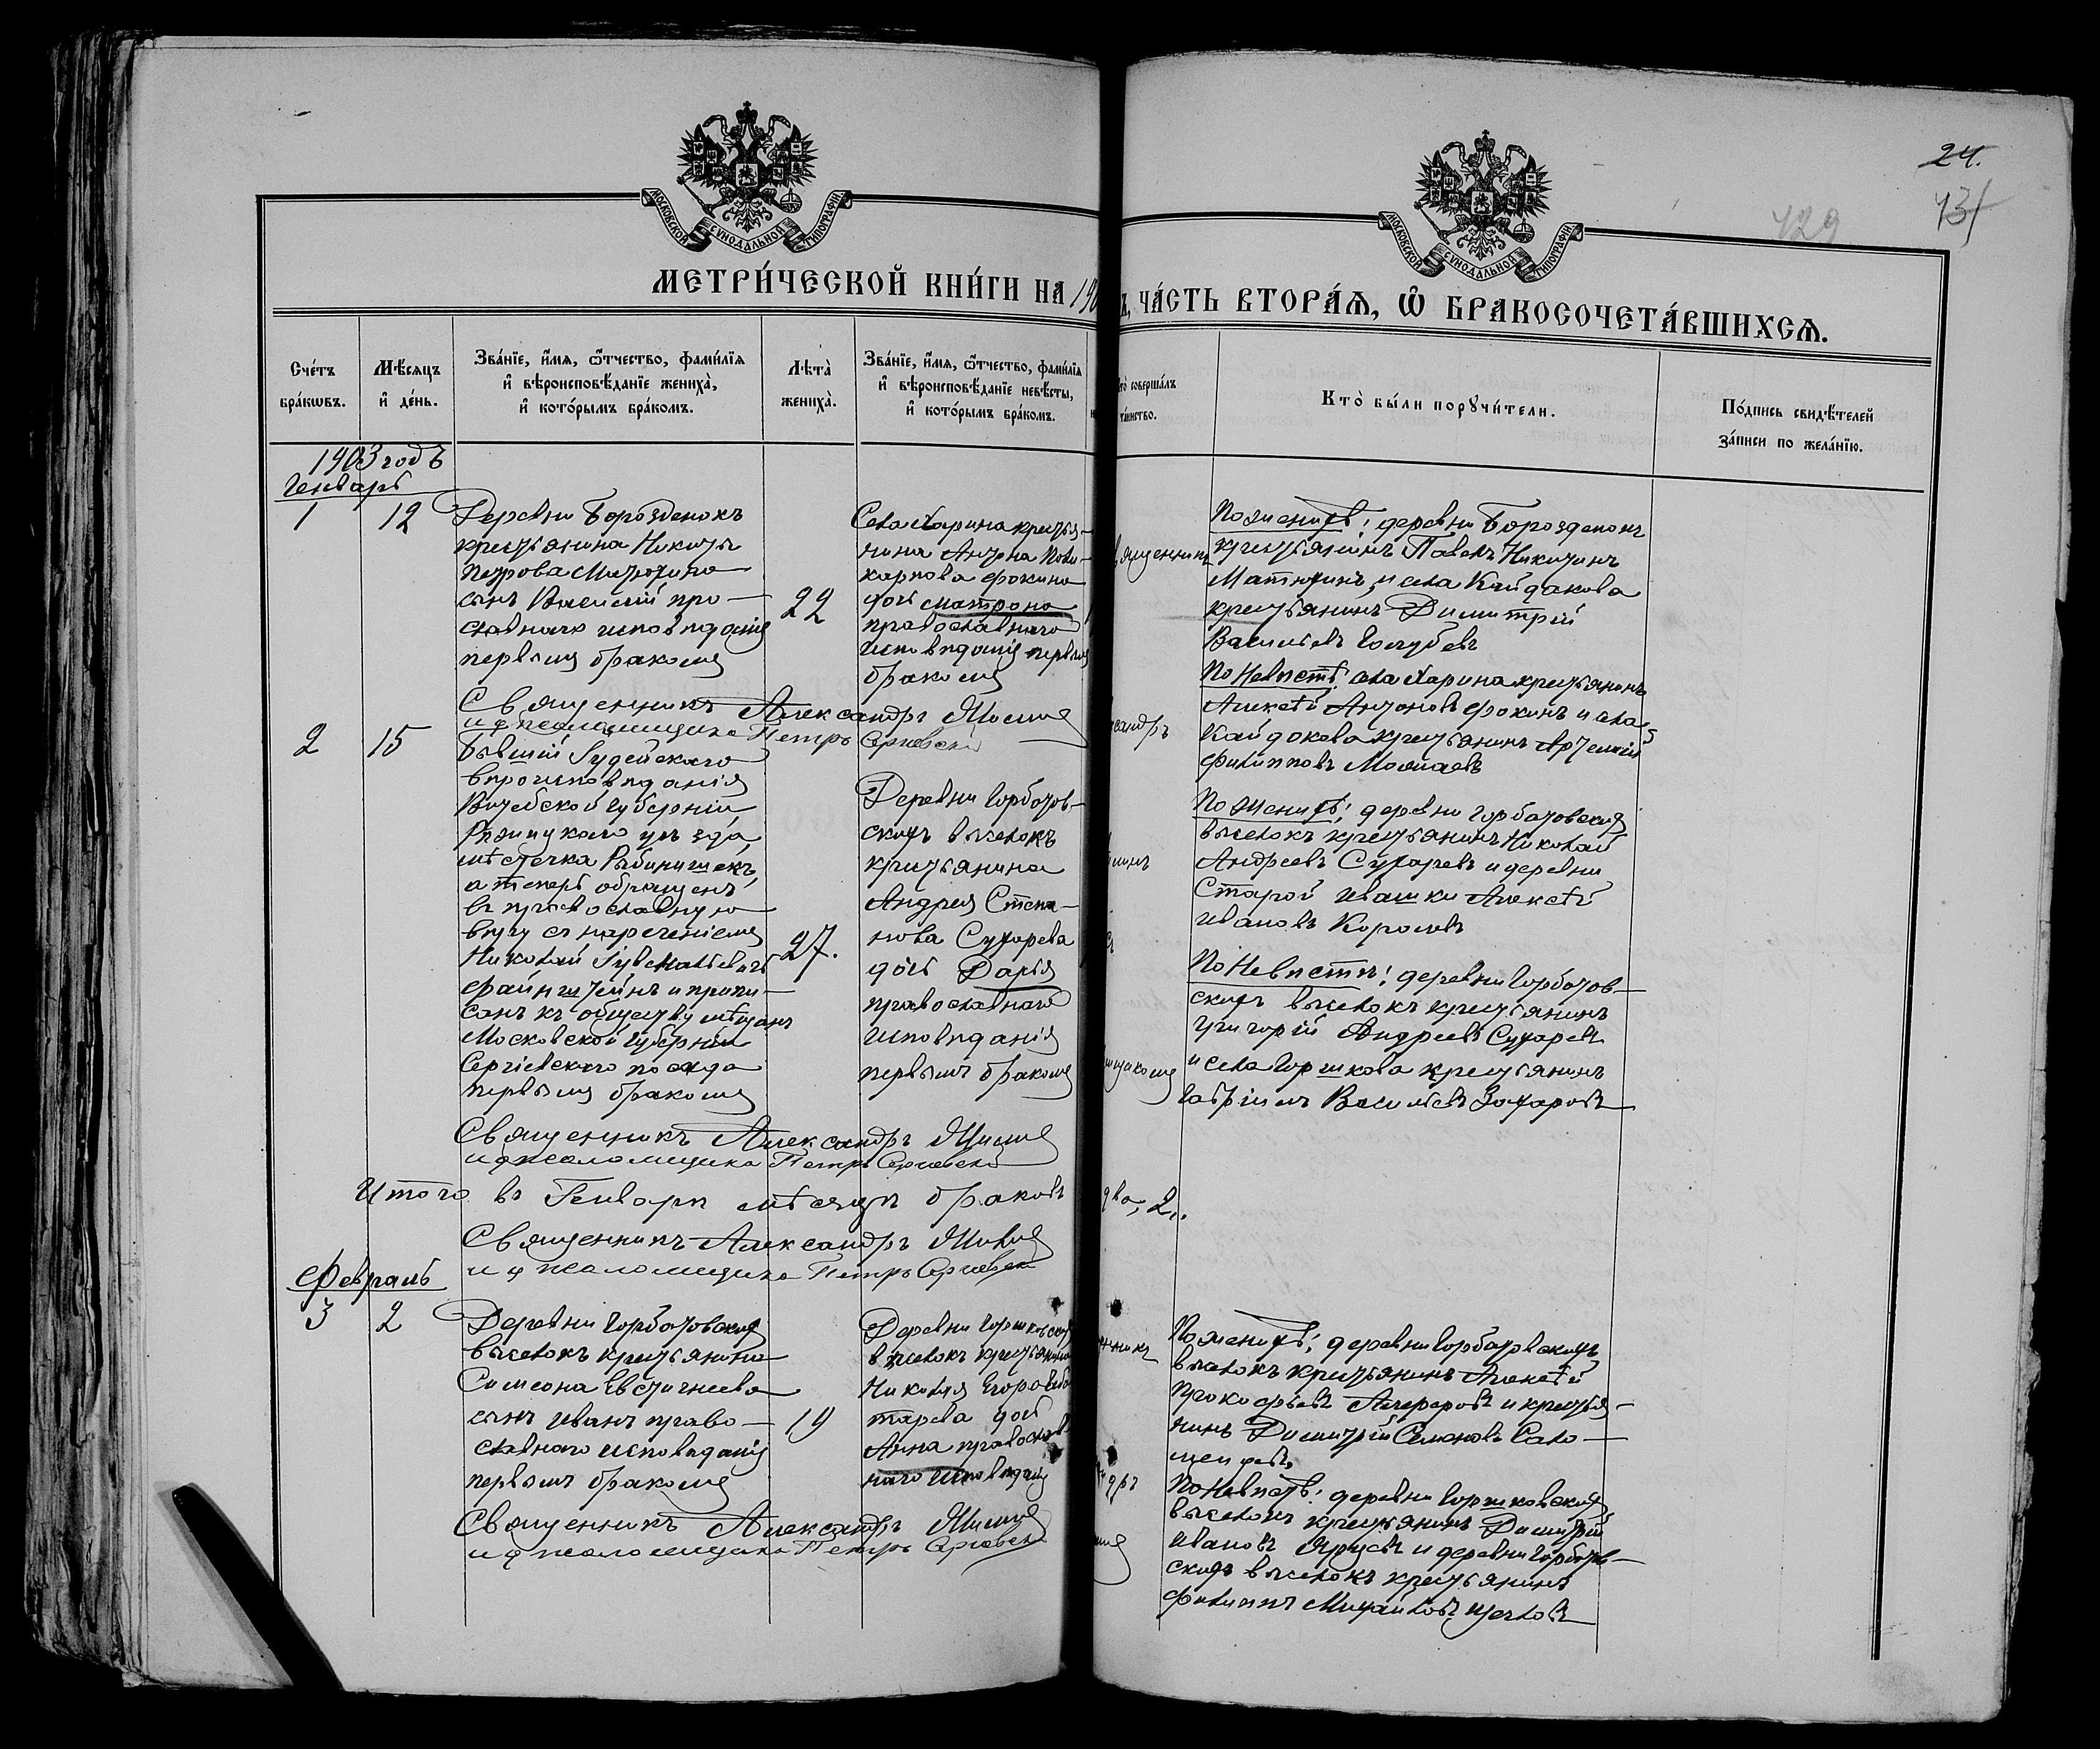 24.
431
429
МОСКОВСКОЙ СѴНОДАЛЬНОЙ ТИПОГРАФІИ
МОСКОВСКОЙ СѴНОДАЛЬНОЙ ТИПОГРАФІИ
МЕТРИ́ЧЕСКОЙ КНИ́ГИ НА 190
Ъ, ЧА́СТЬ ВТОРА́Ѧ, Ѽ БРАКОСОЧЕТА́ВШИХСѦ.
Сче́тъ бра́кѡвъ.
Мѣ́сяцъ и҆ де́нь.
Зва́нїе, и҆́мя, ѻ҆́тчество, фами́лїя
и҆ вѣроисповѣ́данїе жениха̀,
и҆ кото́рымъ бра́комъ.
Лѣта̀ жениха̀.
Зва́нїе, и҆́мя, ѻ҆́тчество, фами́лїя
и҆ вѣроисповѣ́данїе невѣ́сты,
и҆ кото́рымъ бра́комъ.
то̀ соверша́лъ
таинство.
Кто̀ бы́ли порꙋчи́тели.
По́дпись свидѣ́телей
за́писи по жела́нїю.
1903 годъ
Генварь
1
12
Деревни Борозденокъ
крестьянина Никиты
Петрова Матюхина
сынъ Василий про-
славнаго исповѣданія
первымъ бракомъ
22
Села Харина крестья-
нина Антона Поли-
карпова Фокина
дочь Матрона
православнаго
исповѣданія первымъ
бракомъ
священникъ
По женихѣ: деревни Борозденокъ
крестьянинъ Павелъ Никитинъ
Матюхинъ, и села Кайдакова
крестьянинъ Димитрій
Васильевъ Голубевъ
По Невѣстѣ: села Харина крестьянинъ
Алексѣй Антоновъ Фокинъ и села
Кайдакова крестьянинъ Артемій
Филипповъ Мамаевъ
Священникъ Александръ
и д псаломщика Петръ Сергиевскій
2
15
Бывшій Іудейскаго
вѣроисповѣданія
Витебской губерніи
Рѣжицкаго уѣзда
мѣстечка Рыбинишекъ,
а теперь обращенъ
въ православную
вѣру съ нареченіемъ
Николай
Файнштейнъ и припи-
санъ къ обществу мѣщанъ
Московской губерніи
Сергіевскаго посада
первымъ бракомъ
27.
Деревни Горбатов-
скихъ выселокъ
крестьянина
Андрея Степа-
нова Сухарева
дочь Дарья
православнаго
исповѣданія
первымъ бракомъ
ксандръ
По женихѣ: деревни Горбатовскихъ
выселокъ крестьянинъ Николай
Андреевъ Сухаревъ и деревни
Старой Ивашки Алексѣй
Ивановъ Королевъ
По Невѣстѣ: деревни Горбатов-
скихъ выселокъ крестьянинъ
Григорій Андреевъ Сухаревъ
и села Горшкова крестьянинъ
Гавріилъ Васильевъ Захаровъ
Священникъ Александръ
и д псаломщика Петръ Сергиевскій
Итого въ Генварѣ мѣсяцѣ браковъ два, 2.
Священникъ Александръ
и д псаломщика Петръ Сергиевскій
Февраль
3
2
Деревни Горбатовскихъ
выселокъ крестьянина
Симеона Евстигнеева
сынъ Иванъ право-
славнаго исповѣданія
первымъ бракомъ
19
Деревни Горшковскихъ
выселокъ крестьянина
Николая Егорова
дочь
Анна православ
наго исповѣданія
По женихѣ: деревни Горбатовскихъ
выселокъ крестьянинъ Алексѣй
Прокофьевъ и крестья-
нинъ Димитрій Семеновъ
По Невѣстѣ: деревни Горшковскихъ
выселокъ крестьянинъ Димитрій
Ивановъ и деревни Горбатов-
скихъ выселокъ крестьянинъ
Филиппъ Михайловъ
Священникъ Александръ
и д псаломщика Петръ Сергиевскій